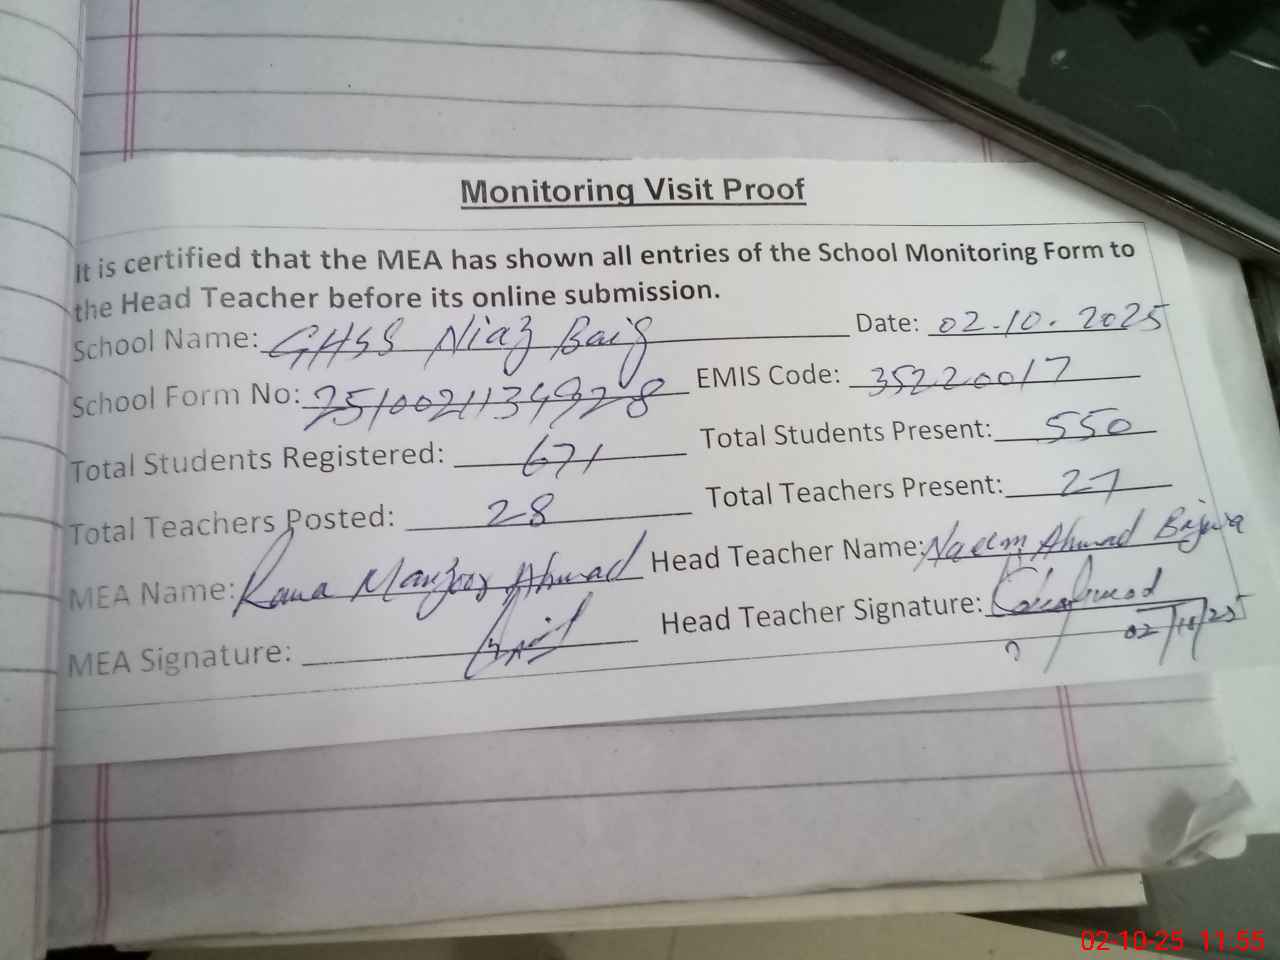 Monitoring Visit Proof
It is certified that the MEA has shown all entries of the School Monitoring Form to
the Head Teacher before its online submission.
School Name: GHSS Niaz Baig Date: 02.10.2025
School Form No: 2510021134928 EMIS Code: 35220017
Total Students Registered: 671 Total Students Present: 550
Total Teachers Posted: 28 Total Teachers Present: 27
MEA Name: Rana Manzoor Ahmad Head Teacher Name: Naeem Ahmad Bajwa
MEA Signature: Head Teacher Signature:
02/10/25
02-10-25 11:55